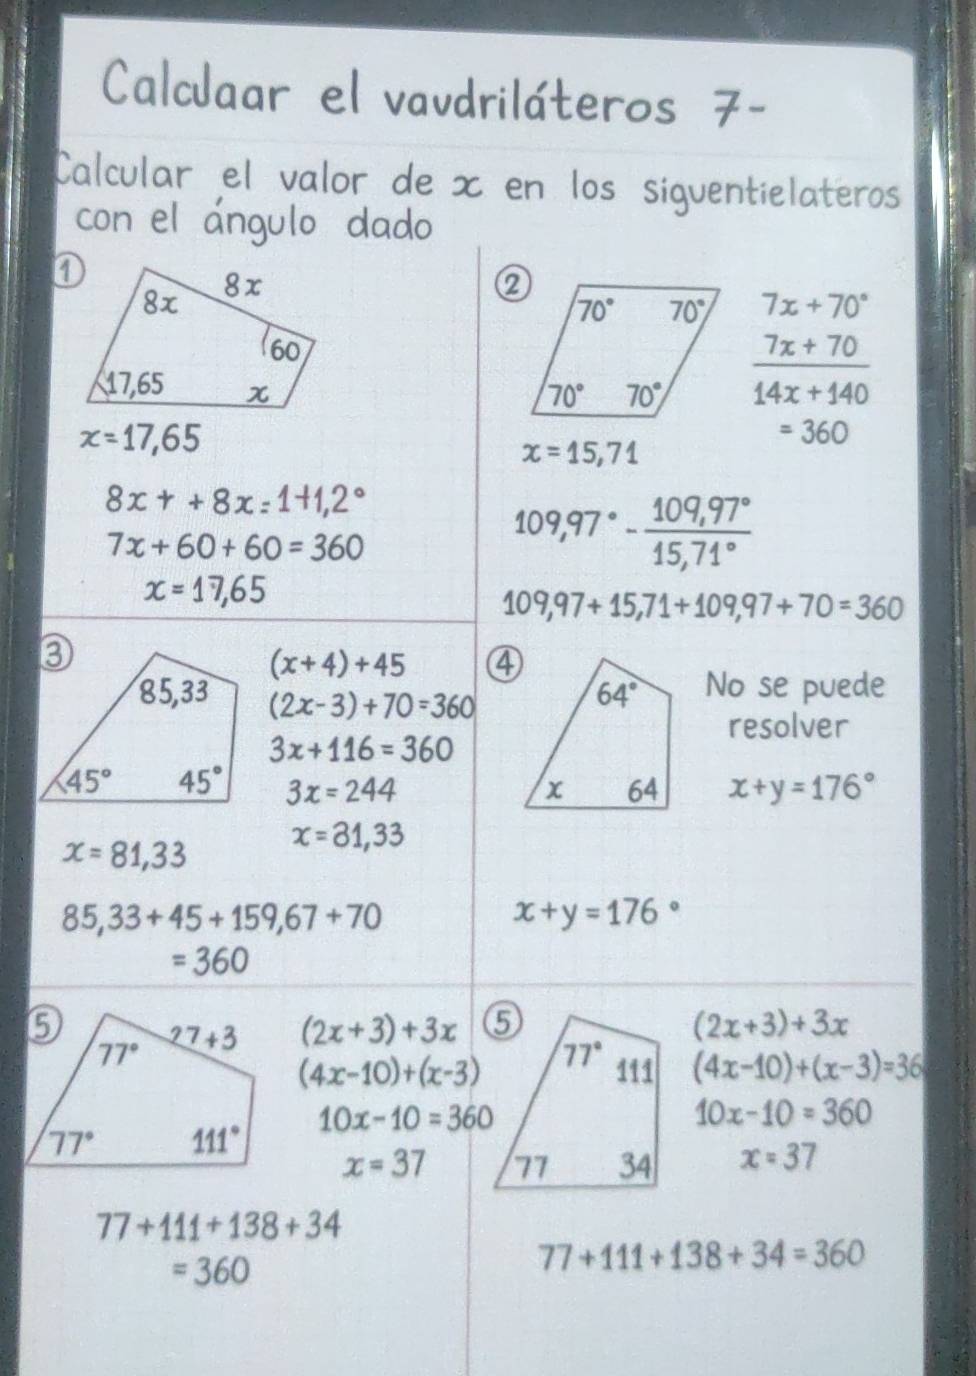 Calculaar el vavdriláteros 7-
Calcular el valor de x en los siguentielateros
con el ángulo dado
①
8x
8x
60
17,65
x
x=17,65
8x + + 8x = 1+1,2°
7x+60+60=360
x=17,65
②
70° 70°
70° 70°
7x+70°
7x+70
14x+140
=360
x=15,71
109,97° - 109,97°
15,71°
109,97+15,71+109,97+70=360
③
85,33
45° 45°
(x+4)+45
(2x-3)+70=360
3x+116=360
3x=244
x=81,33
x=81,33
85,33+45+159,67+70
=360
④
64°
x 64
No se puede
resolver
x+y=176°
x+y=176°
⑤
77° 27+3
77° 111°
(2x+3)+3x
(4x-10)+(x-3)
10x-10=360
x=37
77+111+138+34
=360
⑤
77° 111
77 34
(2x+3)+3x
(4x-10)+(x-3)=36
10x-10=360
x=37
77+111+138+34=360